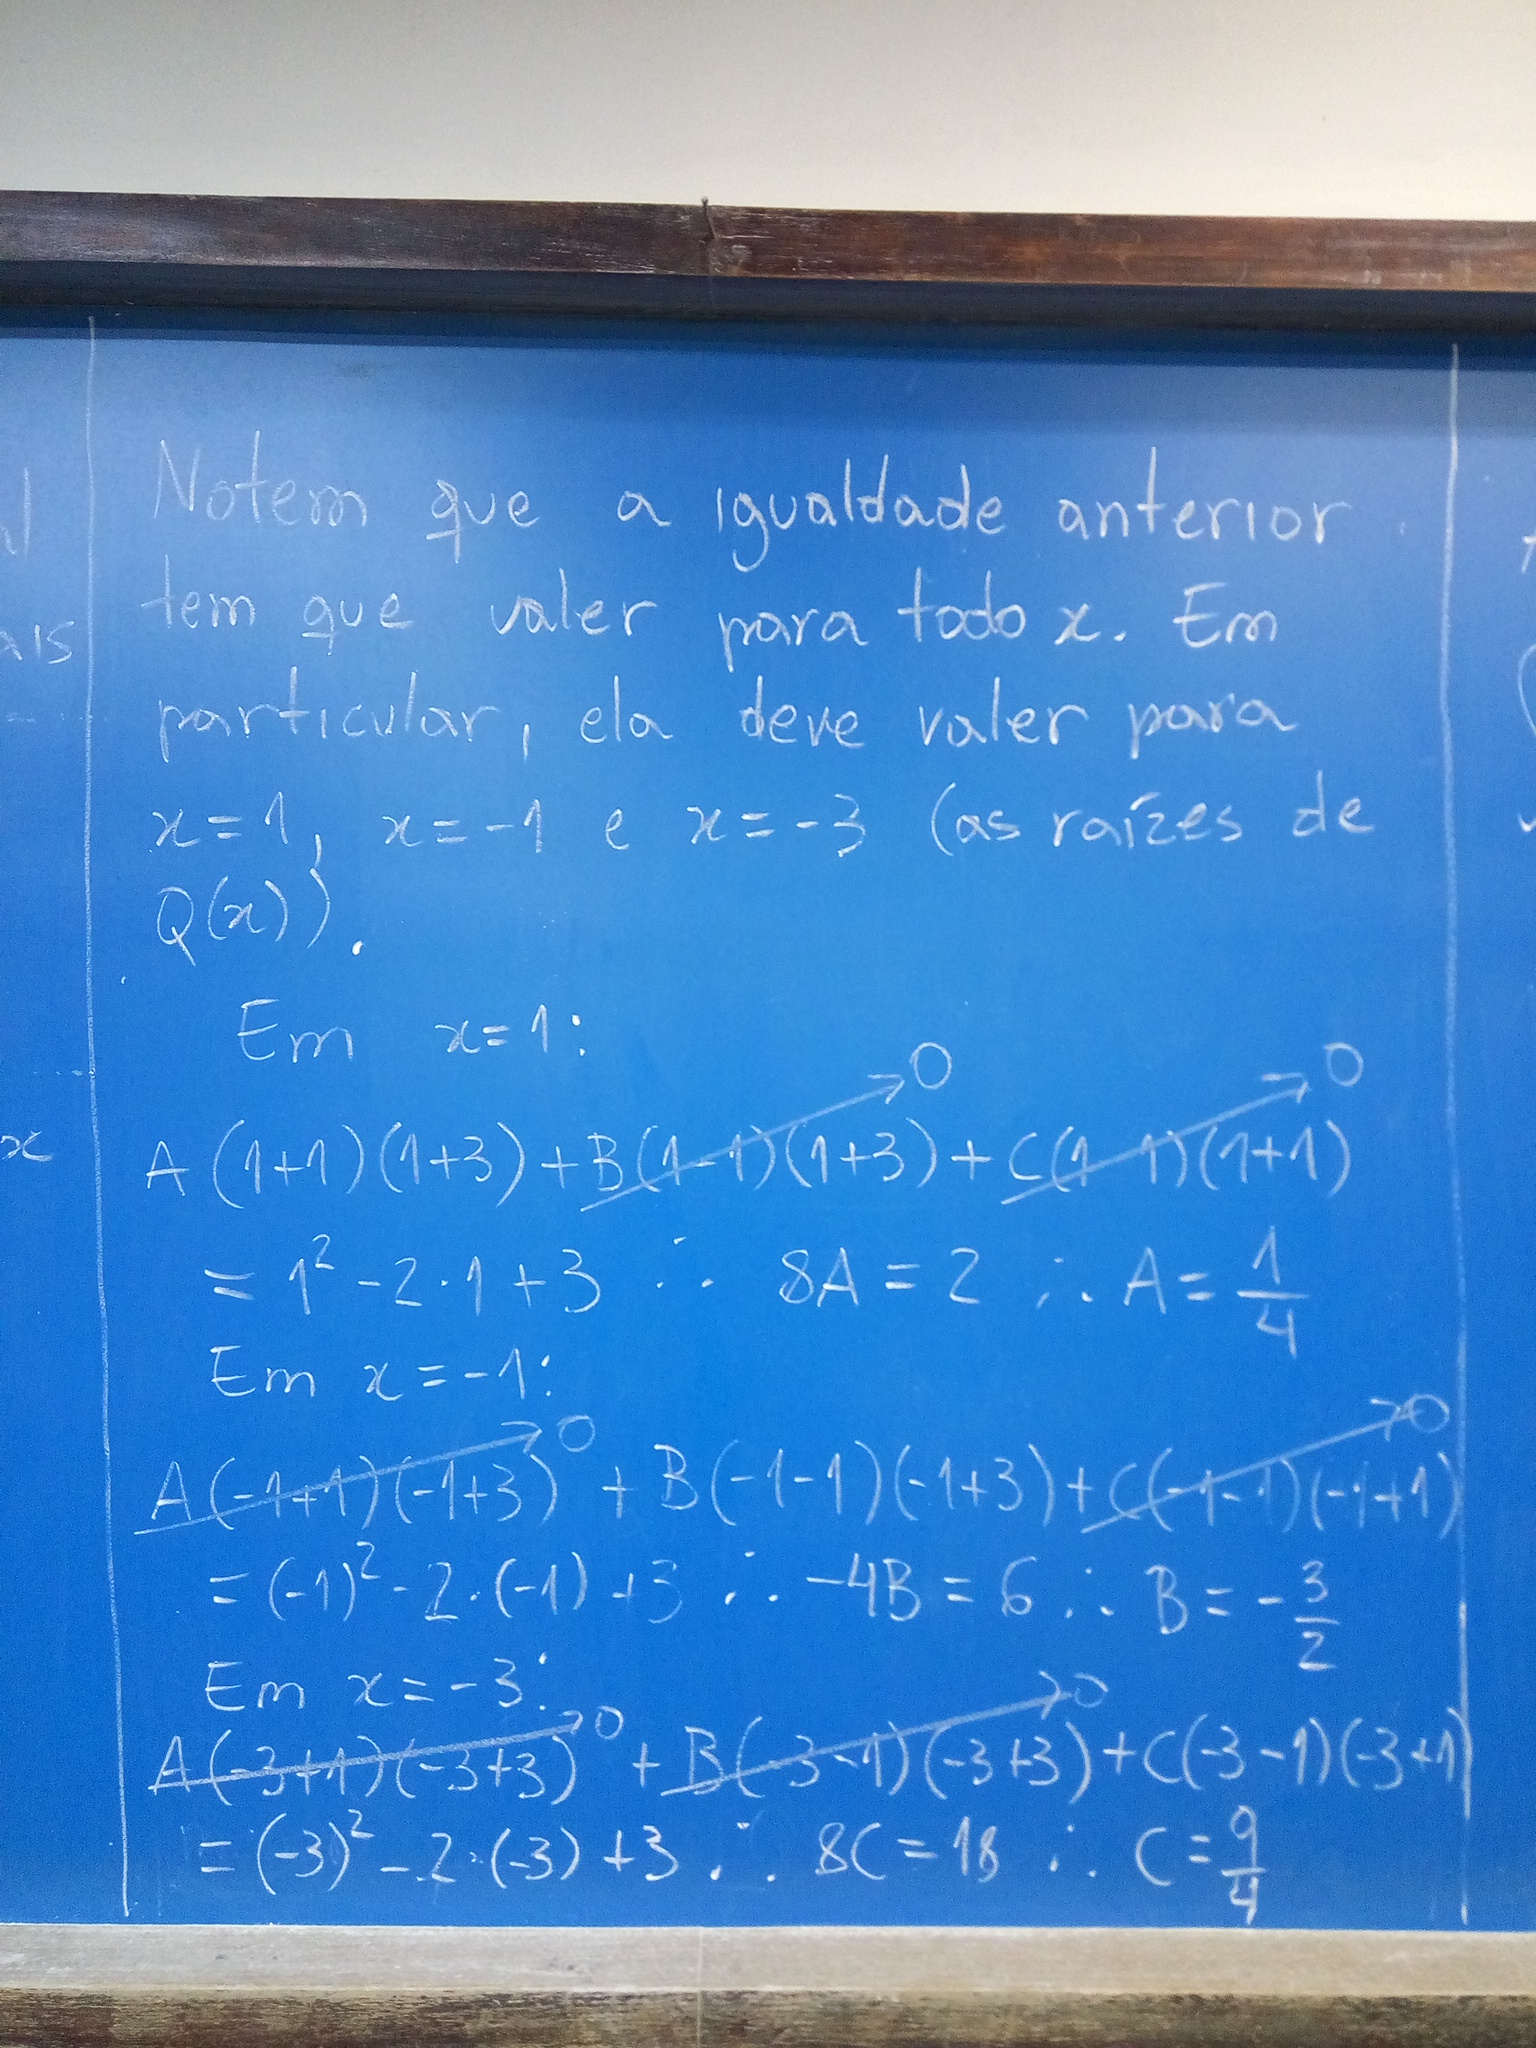 Notem que a igualdade anterior
tem que valer para todo x. Em
particular, ela deve valer para
x=1, x=-1 e x=-3 (as raízes de
Q(x)).
Em x=1:
A(1+1)(1+3)+B(1-1)(1+3)→0+C(1-1)(1+1)→0
=1²-2·1+3 ∴ 8A=2 ∴ A=1/4
Em x=-1:
A(-1+1)(-1+3)→0+B(-1-1)(-1+3)+C(-1-1)(-1+1)→0
=(-1)²-2·(-1)+3 ∴ -4B=6 ∴ B=-3/2
Em x=-3:
A(-3+1)(-3+3)→0+B(-3-1)(-3+3)→0+C(-3-1)(-3+1)
=(-3)²-2·(-3)+3 ∴ 8C=18 ∴ C=9/4
ais
x